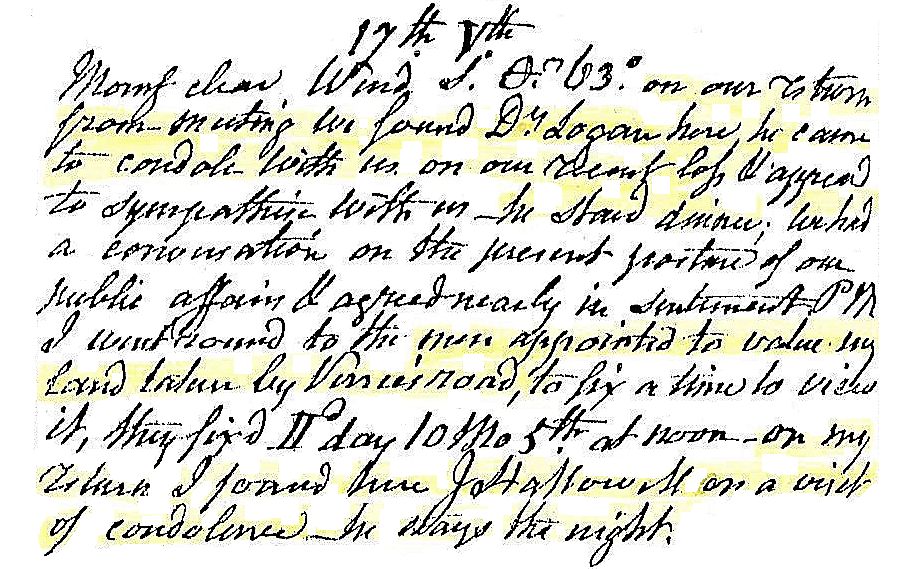 17th Vth
Morng clear Wind S. Dr 63° on our return
from meeting we found Dr Logan here, he came
to condole with us on our recent loss & appeard
to sympathise with us - he staid dinner; we had
a conversation on the present posture of our
public affairs & agreed nearly in sentiment PM
I went round to the men appointed to value my
Land taken by road, to fix a time to view
it, they fixd IId day 10 Mo 5th at noon - on my
return I found here J Hallowell on a visit
of condolence - he stays the night.